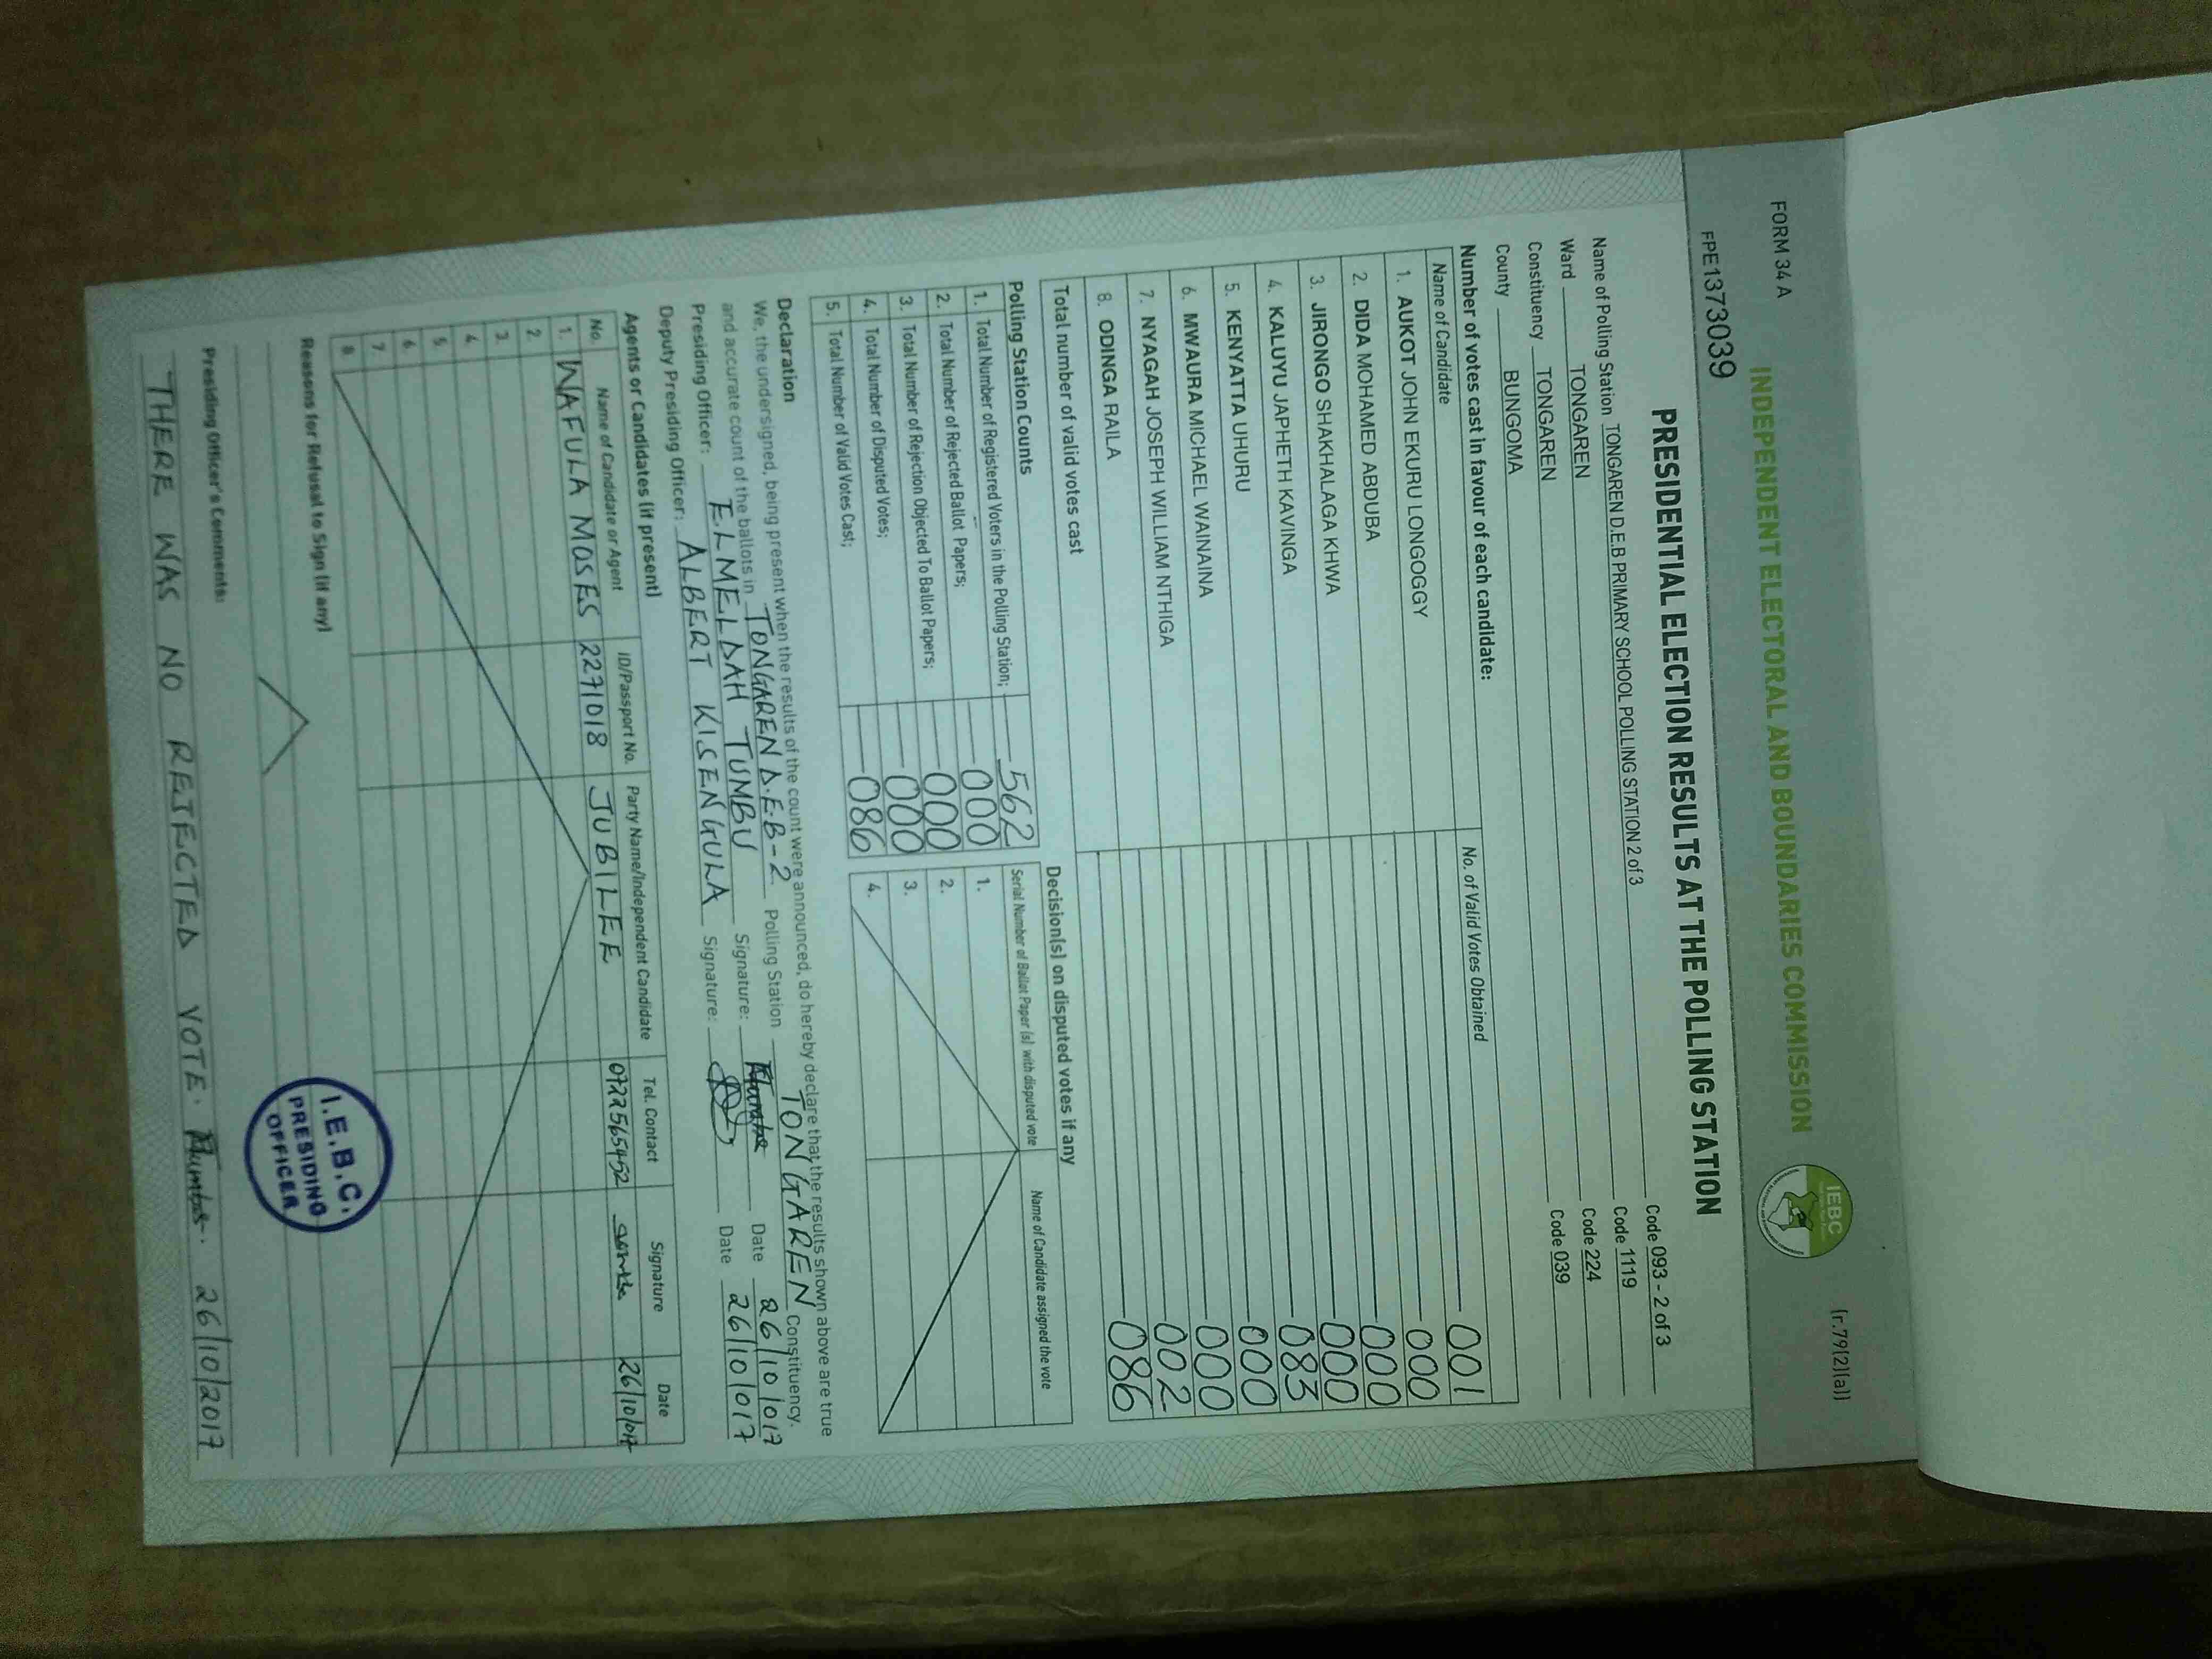 FORM 34 A
(r.79(2)(a))
INDEPENDENT ELECTORAL AND BOUNDARIES COMMISSION
IEBC
FPE1373039
PRESIDENTIAL ELECTION RESULTS AT THE POLLING STATION
Name of Polling Station TONGAREN D.E.B PRIMARY SCHOOL POLLING STATION 2 of 3 Code 093 - 2 of 3
Ward TONGAREN Code 1119
Constituency TONGAREN Code 224
County BUNGOMA Code 039
Number of votes cast in favour of each candidate:
Name of Candidate No. of Valid Votes Obtained
1. AUKOT JOHN EKURU LONGOGGY 001
2. DIDA MOHAMED ABDUBA 000
3. JIRONGO SHAKHALAGA KHWA 000
4. KALUYU JAPHETH KAVINGA 000
5. KENYATTA UHURU 083
6. MWAURA MICHAEL WAINAINA 000
7. NYAGAH JOSEPH WILLIAM NTHIGA 000
8. ODINGA RAILA 002
Total number of valid votes cast 086
Polling Station Counts
1. Total Number of Registered Voters in the Polling Station; 562
2. Total Number of Rejected Ballot Papers; 000
3. Total Number of Rejection Objected To Ballot Papers; 000
4. Total Number of Disputed Votes; 000
5. Total Number of Valid Votes Cast; 086
Decision(s) on disputed votes if any
Serial Number of Ballot Paper (s) with disputed vote Name of Candidate assigned the vote
1.
2.
3.
4.
Declaration
We, the undersigned, being present when the results of the count were announced, do hereby declare that the results shown above are true
and accurate count of the ballots in TONGAREN D.E.B-2 Polling Station TONGAREN Constituency.
Presiding Officer: ELMELDAH TUMBU Signature: Date 26/10/017
Deputy Presiding Officer: ALBERT KISENGULA Signature: Date 26/10/017
Agents or Candidates (if present)
No. Name of Candidate or Agent ID/Passport No. Party Name/Independent Candidate Tel. Contact Signature Date
1. WAFULA MOSES 2271018 JUBILEE 0722565452 26/10/017
2.
3.
4.
5.
6.
7
8
Reasons for Refusal to Sign (if any)
Presiding Officer's Comments:
THERE WAS NO REJECTED VOTE. 26/10/2017
I.E.B.C.
PRESIDING
OFFICER